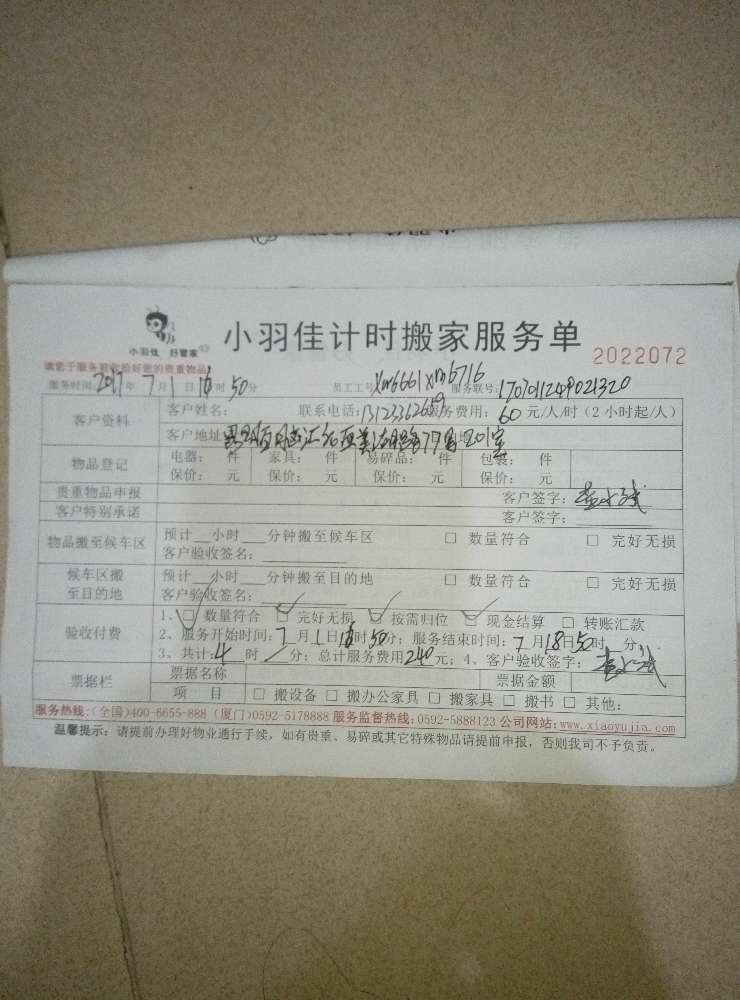 小羽佳 好管家
小羽佳计时搬家服务单
2022072
请您于服务前收拾好您的贵重物品
服务时间: 2017年 7月 1日 16时 50分 员工工号 xm6661 xm6716 服务联号: 1707011249021320
客户资料
客户姓名: 联系电话: 服务费用: 60 元/人/时 (2小时起/人)
客户地址: 201室
物品登记
电器: 件 家具: 件 易碎品: 件 包装: 件
保价: 元 保价: 元 保价: 元 保价: 元
贵重物品申报 客户签字:
客户特别承诺 客户签字:
物品搬至候车区
预计__小时___分钟搬至候车区 □ 数量符合 □ 完好无损
客户验收签名:
候车区搬至目的地
预计__小时___分钟搬至目的地 □ 数量符合 □ 完好无损
客户验收签名:
验收付费
1、□ 数量符合 □ 完好无损 □ 按需归位 □ 现金结算 □ 转账汇款
2、服务开始时间: 7月1日16时50分; 服务结束时间: 7月 日 时 分.
3、共计: 4 时 分; 总计服务费用240元; 4、客户验收签字:
票据栏
票据名称 票据金额
项 目 □ 搬设备 □ 搬办公家具 □ 搬家具 □ 搬书 □ 其他:
服务热线: (全国)400-6655-888 (厦门)0592-5178888 服务监督热线: 0592-5888123 公司网站: www.xiaoyujia.com
温馨提示: 请提前办理好物业通行手续, 如有贵重、易碎或其它特殊物品请提前申报, 否则我司不予负责。